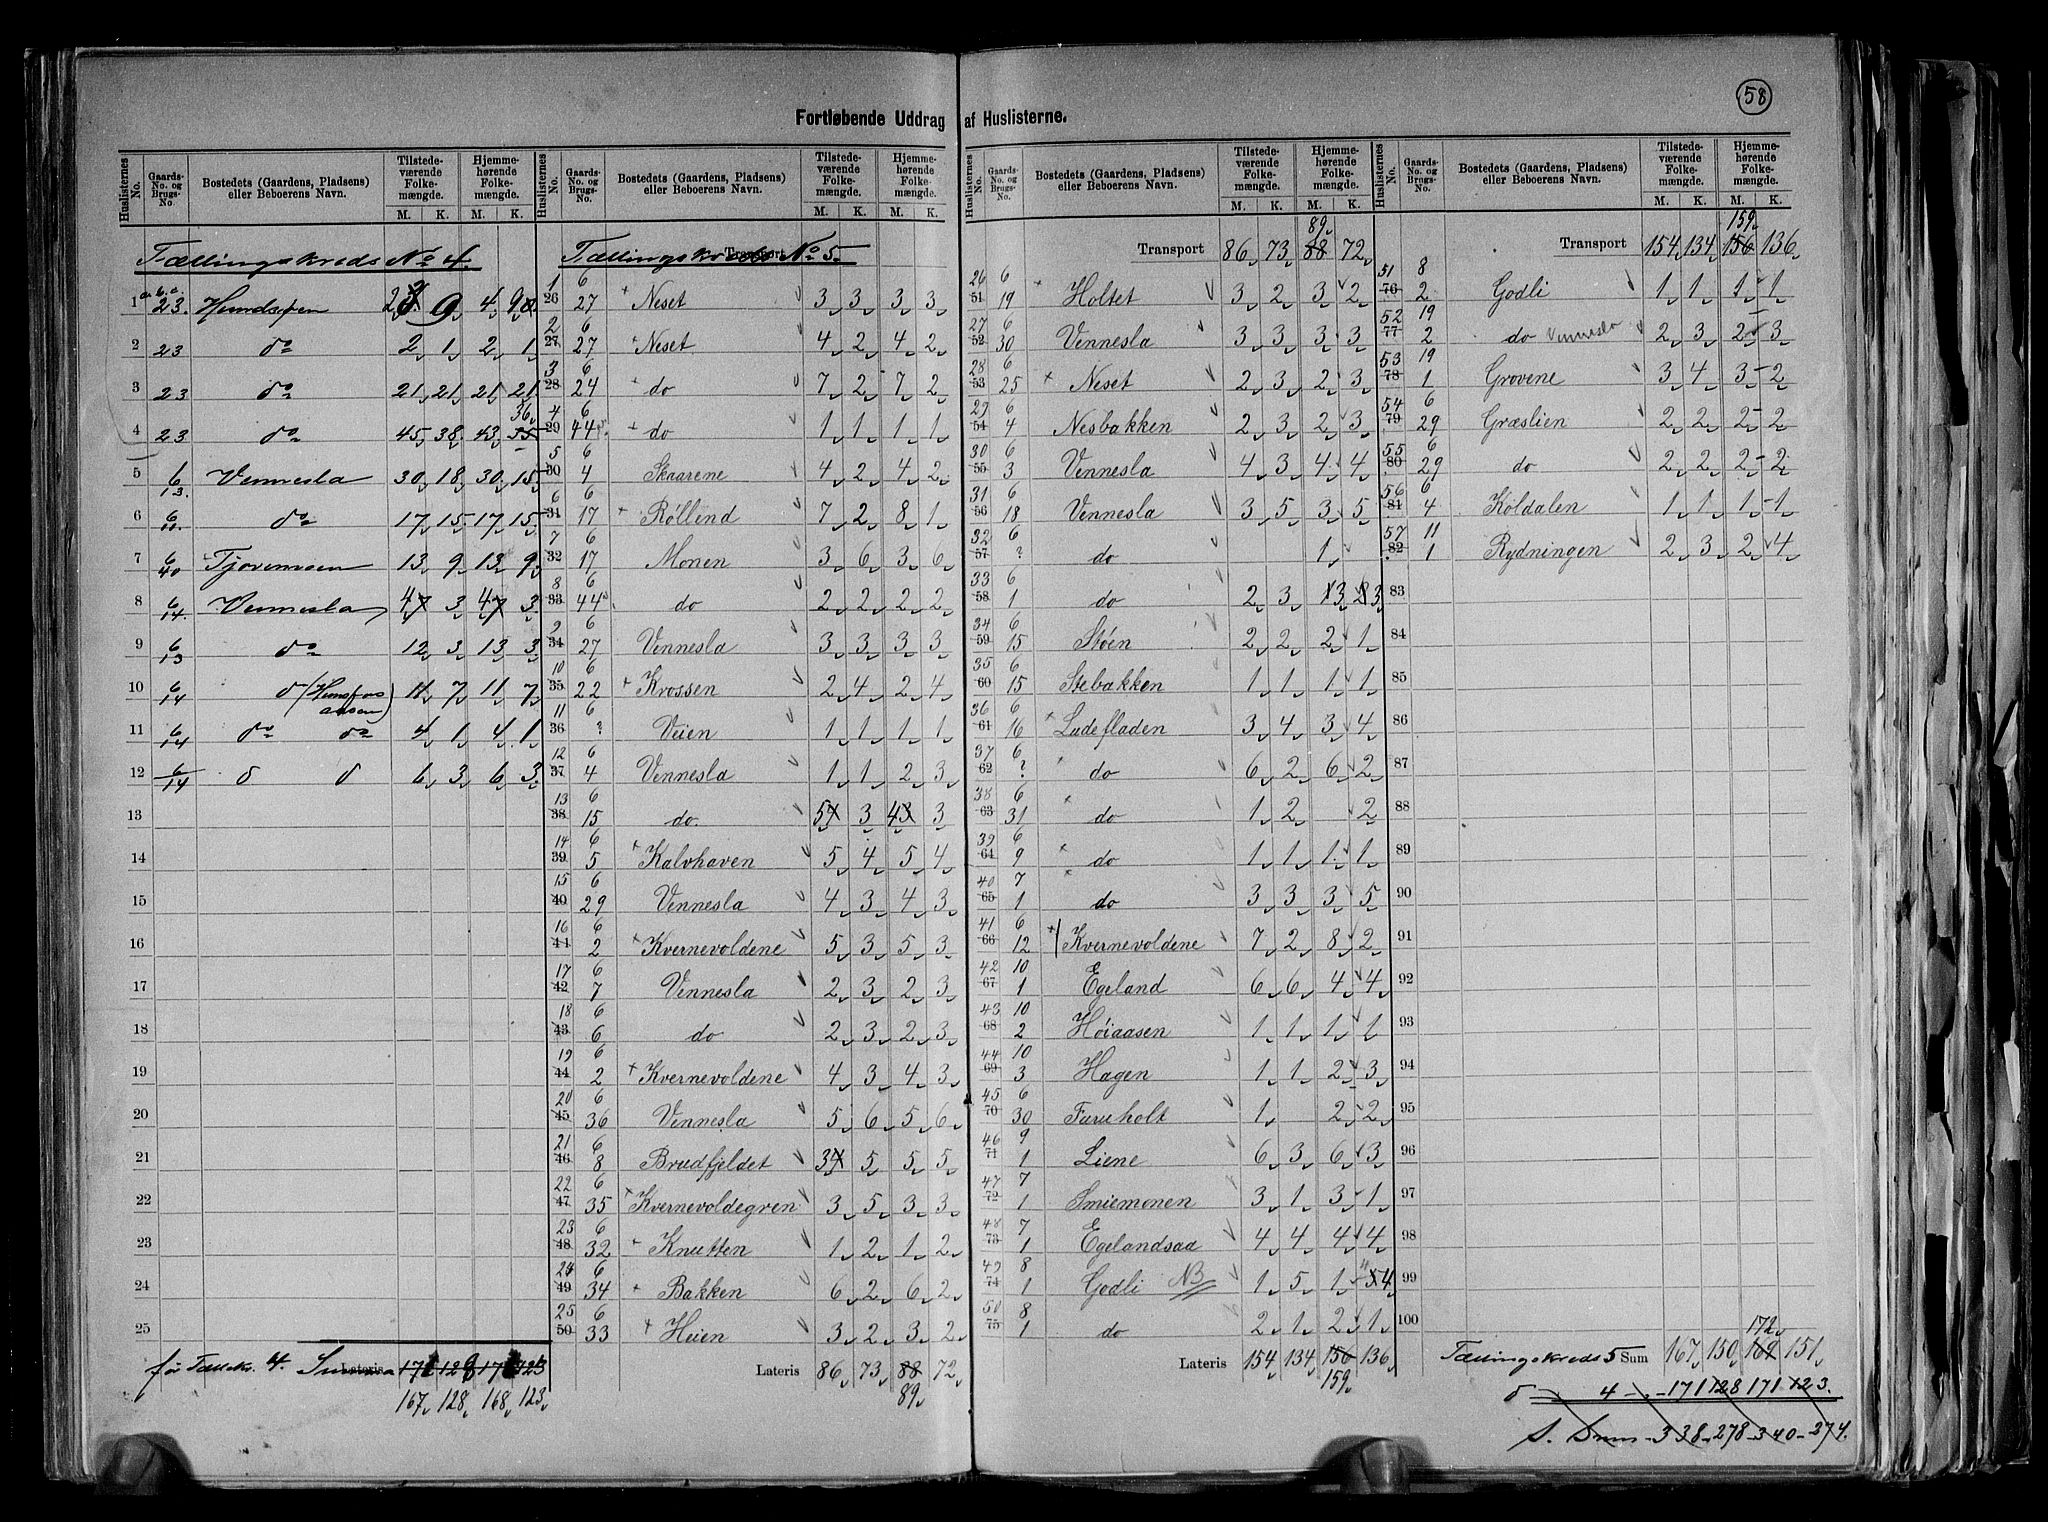 58
Fortløbende Uddrag af Huslisterne.
Huslisternes No. Gaards-No. og Brugs-No. Bostedets (Gaardens, Pladsens) eller Beboerens Navn. Tilstedeværende Folkemængde. M. K. Hjemmehørende Folkemængde. M. K.
Tællingskreds No 4.
2 23 do 2 1 2 1
3 23 do 21 21 21 21
4 23 do 45 38 43 36
5 6/13 Vennesla 30 18 30 15
6 do 17 15 17 15
7 6/40 Tjovenmoen 13 9 13 9
8 6/14 Vennesla 4 3 4 3
9 6/13 do 12 3 13 3
10 6/14 11 7 11 7
11 6/14 do do 4 1 4 1
12 6/14 d d 6 3 6 3
13
14
15
16
17
18
19
20
21
22
23
24
25
Lateris
167 128 168 123
Huslisternes No. Gaards-No. og Brugs-No. Bostedets (Gaardens, Pladsens) eller Beboerens Navn. Tilstedeværende Folkemængde. M. K. Hjemmehørende Folkemængde. M. K.
Tællingskreds No 5.
Transport
1 26 6 27 + Neset 3 3 3 3
2 27 6 27 + Neset 4 2 4 2
3 28 6 24 + do 7 2 7 2
4 29 6 44 + do 1 1 1 1
5 30 6 4 Skaarene 4 2 4 2
6 31 6 17 + Røllend 7 2 8 1
7 32 6 17 Monen 3 6 3 6
8 33 6 44 do 2 2 2 2
9 34 6 27 Vennesla 3 3 3 3
10 35 6 22 + Krossen 2 4 2 4
11 36 6 ? Veien 1 1 1 1
12 37 6 4 Vennesla 1 1 2 3
13 38 6 15 do. 5 3 4 3
14 39 6 5 + Kalvhaven 5 4 5 4
15 40 6 29 Vennesla 4 3 4 3
16 41 6 2 + Kvernevoldene 5 3 5 3
17 42 6 7 Vennesla 2 3 2 3
18 43 6 6 do 2 3 2 3
19 44 6 2 + Kvernevoldene 4 3 4 3
20 45 6 36 Vennesla 5 6 5 6
21 46 6 8 Brudfjeldet 3 5 5 5
22 47 6 35 + Kvernevoldegren 3 5 3 3
23 48 6 32 + Knutten 1 2 1 2
24 49 6 34 + Bakken 6 2 6 2
25 50 6 33 + Heien 3 2 3 2
Lateris 86 73 88 72
89
Huslisternes No. Gaards-No. og Brugs-No. Bostedets (Gaardens, Pladsens) eller Beboerens Navn. Tilstedeværende Folkemængde. M. K. Hjemmehørende Folkemængde. M. K.
89
Transport 86 73 88 72
26 51 6 19 + Holtet 3 2 3 2
27 52 6 30 Vennesla 3 3 3 3
28 53 6 25 + Neset 2 3 2 3
29 54 6 4 Nesbakken 2 3 2 3
30 55 6 3 Vennesla 4 3 4 4
31 56 6 18 Vennesla 3 5 3 5
32 57 6 ? do 1
33 58 6 1 do 2 3 3 3
34 59 6 15 Støen 2 2 2 1
35 60 6 15 Stebakken 1 1 1 1
36 61 6 16 + Ladefladen 3 4 3 4
37 62 6 ? do 6 2 6 2
38 63 6 31 + do 1 2 2
39 64 6 9 + do 1 1 1 1
40 65 7 1 do 3 3 3 5
41 66 6 12 + Kvernevoldene 7 2 8 2
42 67 10 1 Egeland 6 6 4 4
43 68 10 2 Høiaasen 1 1 1 1
44 69 10 3 Hagen 1 1 2 3
45 70 6 30 Furuholt 1 2 2
46 71 9 1 Liene 6 3 6 3
47 72 7 1 Smiemonen 3 1 3 1
48 73 7 1 Egelandsaa 4 4 4 4
49 74 8 1 Godli NB 1 5 1 4
50 75 8 1 do 2 1 2 1
Lateris 154 134 156 136
159
Huslisternes No. Gaards-No. og Brugs-No. Bostedets (Gaardens, Pladsens) eller Beboerens Navn. Tilstedeværende Folkemængde. M. K. Hjemmehørende Folkemængde. M. K.
159
Transport 154 134 156 136
51 76 8 2 Godli 1 1 1 1
52 77 19 2 do Vennesla 2 3 2 3
53 78 19 1 Grovene 3 4 3 2
54 79 6 29 Græslien 2 2 2 2
55 80 6 29 do 2 2 2 2
56 81 6 4 Koldalen 1 1 1 1
57 82 11 1 Rydningen 2 3 2 4
83
84
85
86
87
88
89
90
91
92
93
94
95
96
97
98
99
100
172
Tællingskreds 5 Sum 167 150 169 151
d 4 171 128 171 123
S. Sum 338 278 340 274.